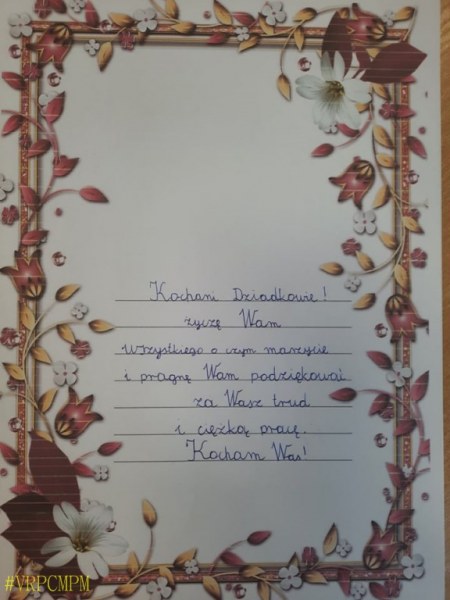 Kochani Dziadkowie!
życzę Wam
wszystkiego o czym marzycie
i pragnę Wam podziękować
za Wasz trud
i ciężką pracę.
Kocham Was!
#VRPCMPM